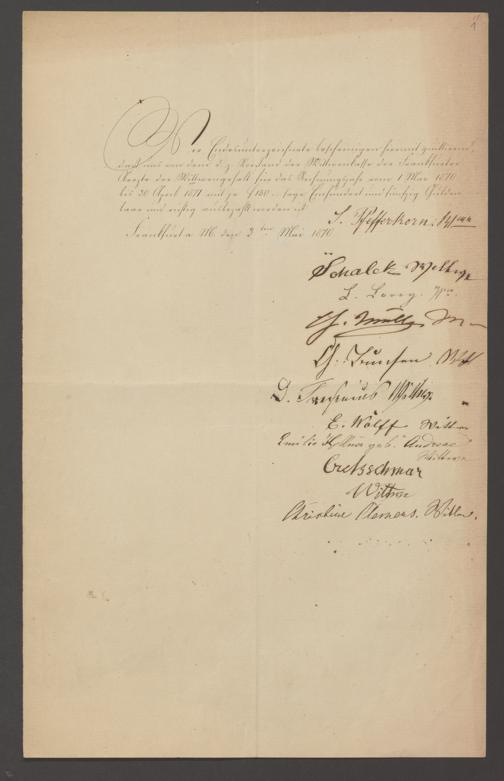 Wir Endesunterzeichnete bescheinigen hiermit quittirend,
daß uns von dem d. z. Vorstand der Wittwenkasse der Frankfurter
Aerzte der Wittwengehalt für das Rechnungsjahr vom 1 Mai 1870
bis 30 April 1871 mit je f 150 sage Einhundert und fünfzig Gulden
baar und richtig ausbezahlt worden ist
Frankfurt a M. den 2ten Mai 1870
J. Pfefferkorn.
Schalck Wittwe
L. Lorey.
Müller
Ch. Bunsen
D. Fresenius Wittwe
E. Wolff Wittwe
Emilie geb. Andreae
Wittwe
Cretzschmar
Wittwe
Christine Clemens. Wittwe.